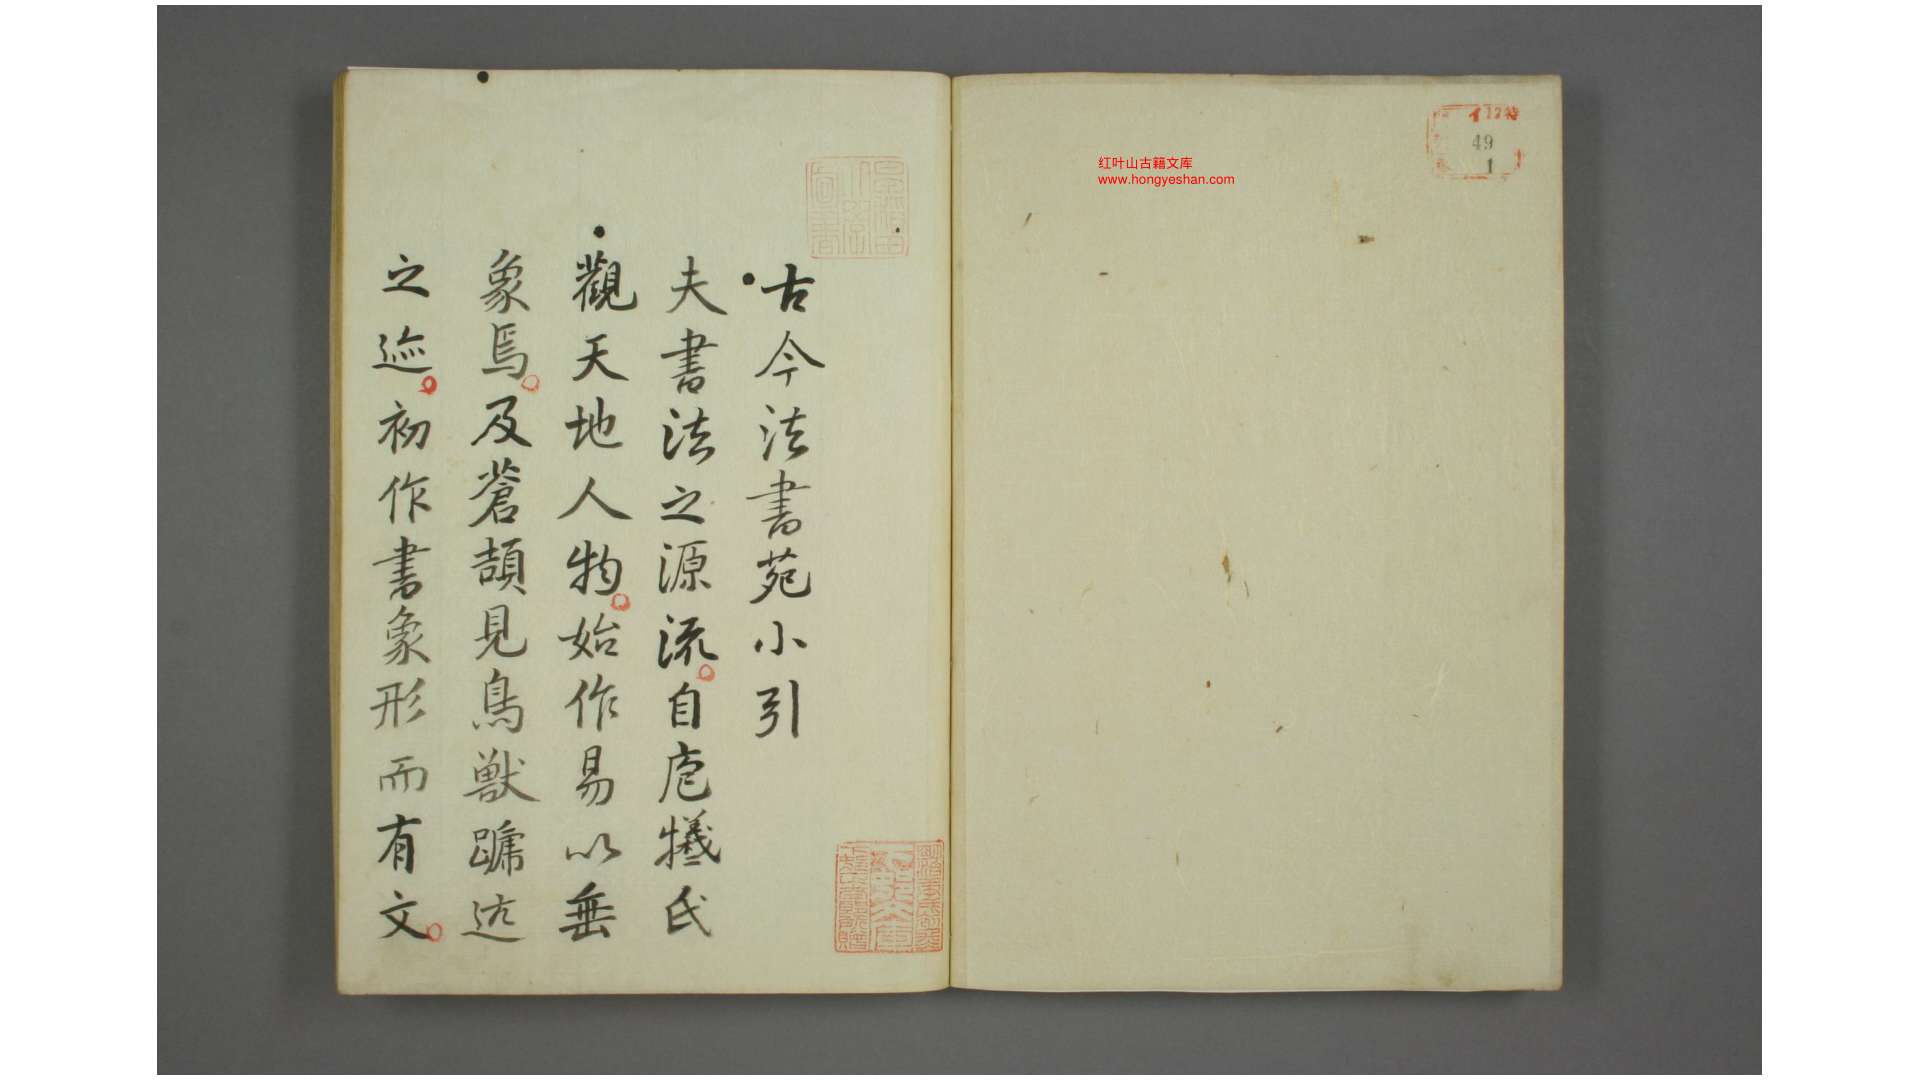 イ12特
49
1
红叶山古籍文库
www.hongyeshan.com
古今法書苑小引
夫書法之源流自庖犧氏
觀天地人物始作易以垂
象焉及蒼頡見鳥獸蹏迒
之迹初作書象形而有文